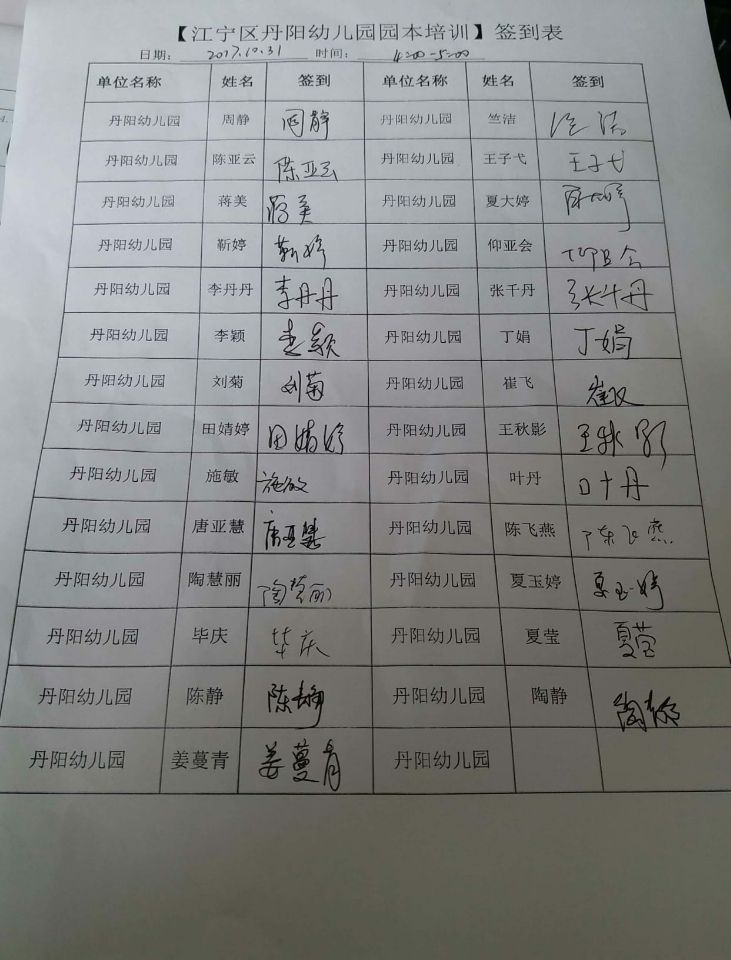 【江宁区丹阳幼儿园园本培训】签到表
日期： 2017.10.31 时间： 4:00-5:00
单位名称 姓名 签到 单位名称 姓名 签到
丹阳幼儿园 周静 周静 丹阳幼儿园 竺洁 竺洁
丹阳幼儿园 陈亚云 陈亚云 丹阳幼儿园 王子弋 王子弋
丹阳幼儿园 蒋美 蒋美 丹阳幼儿园 夏大婷 夏大婷
丹阳幼儿园 靳婷 靳婷 丹阳幼儿园 仰亚会 仰亚会
丹阳幼儿园 李丹丹 李丹丹 丹阳幼儿园 张千丹 张千丹
丹阳幼儿园 李颖 李颖 丹阳幼儿园 丁娟 丁娟
丹阳幼儿园 刘菊 刘菊 丹阳幼儿园 崔飞 崔飞
丹阳幼儿园 田婧婷 田婧婷 丹阳幼儿园 王秋影 王秋影
丹阳幼儿园 施敏 施敏 丹阳幼儿园 叶丹 叶丹
丹阳幼儿园 唐亚慧 唐亚慧 丹阳幼儿园 陈飞燕 陈飞燕
丹阳幼儿园 陶慧丽 陶慧丽 丹阳幼儿园 夏玉婷 夏玉婷
丹阳幼儿园 毕庆 毕庆 丹阳幼儿园 夏莹 夏莹
丹阳幼儿园 陈静 陈静 丹阳幼儿园 陶静 陶静
丹阳幼儿园 姜蔓青 姜蔓青 丹阳幼儿园